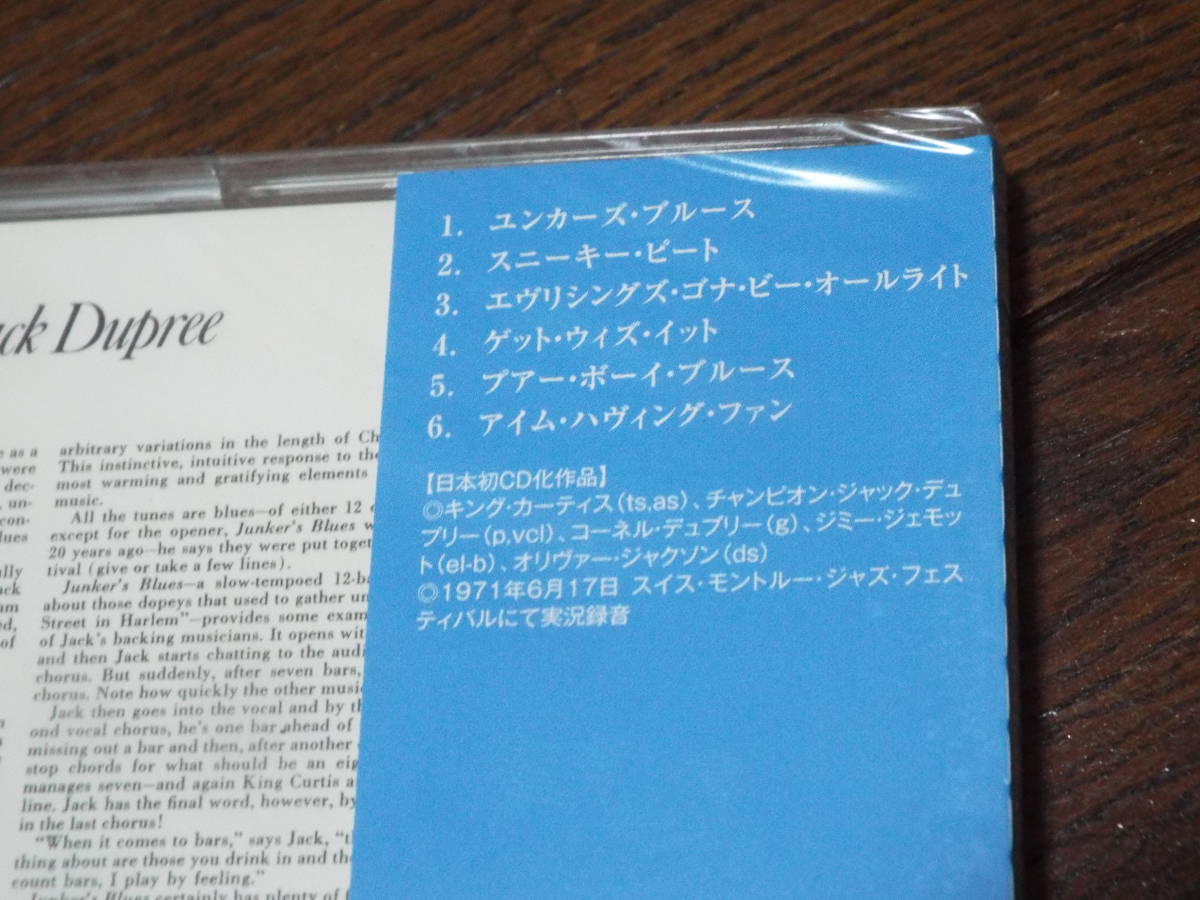 ck Dupree
e as a
were
dec-
un-
con-
lues
ully
ck
am
ed,
of
arbitrary variations in the length of Ch
This instinctive, intuitive response to the
most warming and gratifying elements
music.
All the tunes are blues—of either 12
except for the opener, Junker's Blues w
20 years ago—he says they were put toget
tival (give or take a few lines).
Junker's Blues—a slow-tempoed 12-ba
about those dopeys that used to gather un
Street in Harlem"—provides some exam
of Jack's backing musicians. It opens wit
and then Jack starts chatting to the audi
chorus. But suddenly, after seven bars,
chorus. Note how quickly the other musi
Jack then goes into the vocal and by th
ond vocal chorus, he's one bar ahead of
missing out a bar and then, after another
stop chords for what should be an eig
manages seven—and again King Curtis a
line. Jack has the final word, however, by
in the last chorus!
"When it comes to bars," says Jack, "t
thing about are those you drink in and the
count bars, I play by feeling."
Junker's Blues certainly has plenty of f
1. ユンカーズ・ブルース
2. スニーキー・ピート
3. エヴリシングズ・ゴナ・ビー・オールライト
4. ゲット・ウィズ・イット
5. プアー・ボーイ・ブルース
6. アイム・ハヴィング・ファン
【日本初CD化作品】
◎キング・カーティス(ts,as)、チャンピオン・ジャック・デュ
プリー(p,vcl)、コーネル・デュプリー(g)、ジミー・ジェモッ
ト(el-b)、オリヴァー・ジャクソン(ds)
◎1971年6月17日 スイス・モントルー・ジャズ・フェス
ティバルにて実況録音